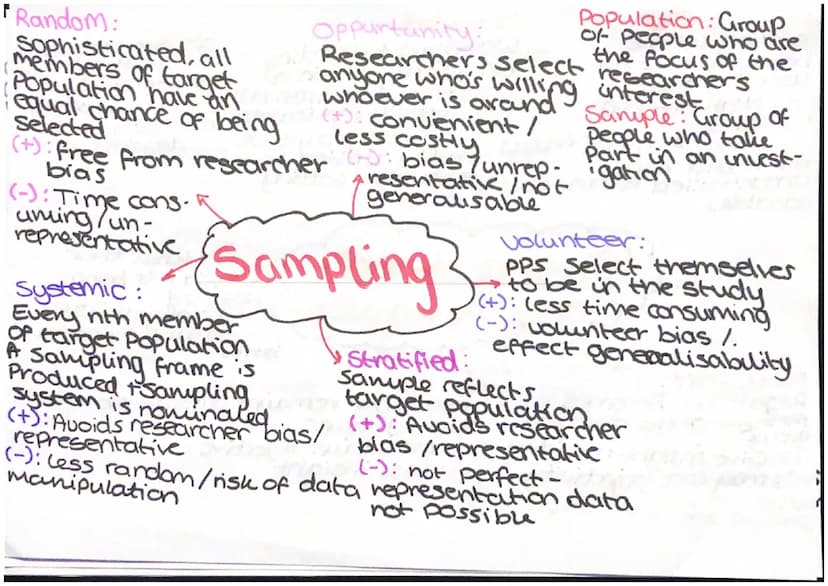 Random:
Sophisticated, all
members of target
Population have an
equal chance of being
selected
(+): free from researcher
bias
(-): Time cons-
uming/un-
representative
Oppurtunity:
Researchers select
anyone who's willing
whoever is around
(+): convenient /
less costly
(-): bias /unrep-
resentative /not
generalisable
Population: Group
of people who are
the focus of the
researchers
interest
Sample: Group of
People who take
Part in an invest-
igation
Sampling
Volunteer:
PPS select themselves
to be in the study
(+): less time consuming
(-): volunteer bias /
effect generalisability
Systemic:
Every nth member
of target population
A sampling frame is
Produced + sampling
system is nominated
(+): Avoids researcher bias/
representative
(-): Less random/risk of data
manipulation
Stratified:
Sample reflects
target population
(+): Avoids researcher
bias/representative
(-): not perfect -
representation data
not possible